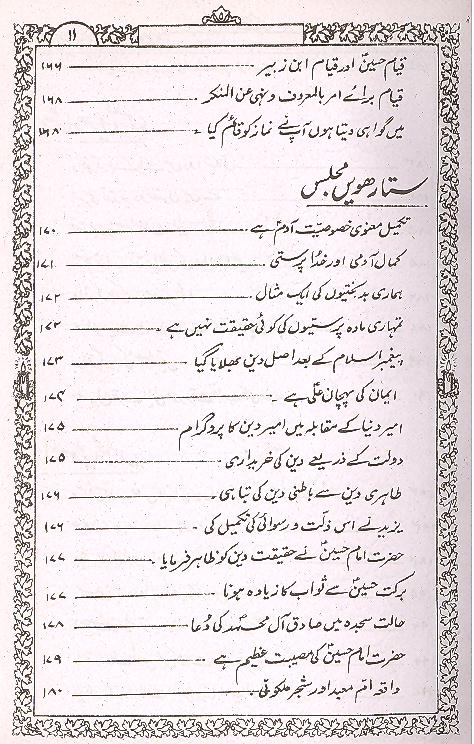 ۱۱
قیام حسینؑ اور قیام ابن زبیر ۱۶۶
قیام برائے امر بالمعروف و نہی عن المنکر ۱۶۸
میں گواہی دیتا ہوں آپ نے نماز کو قائم کیا ۔ ۱۶۸
ستارھویں مجلس
تکمیل معنوی خصوصیت آدمؑ ہے ۱۷۰
کمال آدمی اور خدا پرستی ۱۷۱
ہماری بدبختیوں کی ایک مثال ۱۷۲
تمہاری مادہ پرستیوں کی کوئی حقیقت نہیں ہے ۱۷۲
پیغمبر اسلام کے بعد اصل دین بھلایا گیا ۱۷۳
ایمان کی پہچان علیؑ ہے ۔ ۱۷۴
امیر دنیا کے مقابلہ میں امیر دین کا پروگرام ۱۷۵
دولت کے ذریعے دین کی خریداری ۱۷۵
ظاہری دین سے باطنی دین کی تباہی ۔ ۱۷۶
یزید نے اس ذلت و رسوائی کی تکمیل کی ۔ ۱۷۶
حضرت امام حسینؑ نے حقیقت دین کو ظاہر فرمایا ۔ ۱۷۷
برکت حسینؑ سے ثواب کا زیادہ ہونا ۱۷۷
حالت سجدہ میں صادق آل محمدؐ کی دُعا ۱۷۸
حضرت امام حسینؑ کی مصیبت عظیم ہے ۱۷۹
واقعہ ام معبد اور شجر ملکوتی ۔ ۱۸۰